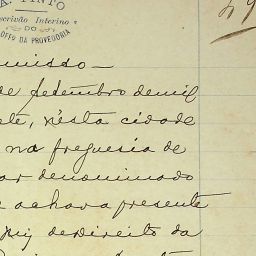 A. PINTO
Escrivão Interino
DO
OFFO DA PROVEDORIA
49
misso —
de Setembro de mil
ete, n'esta cidade
na freguesia de
ar denominado
e achava presente
Juiz de direito da